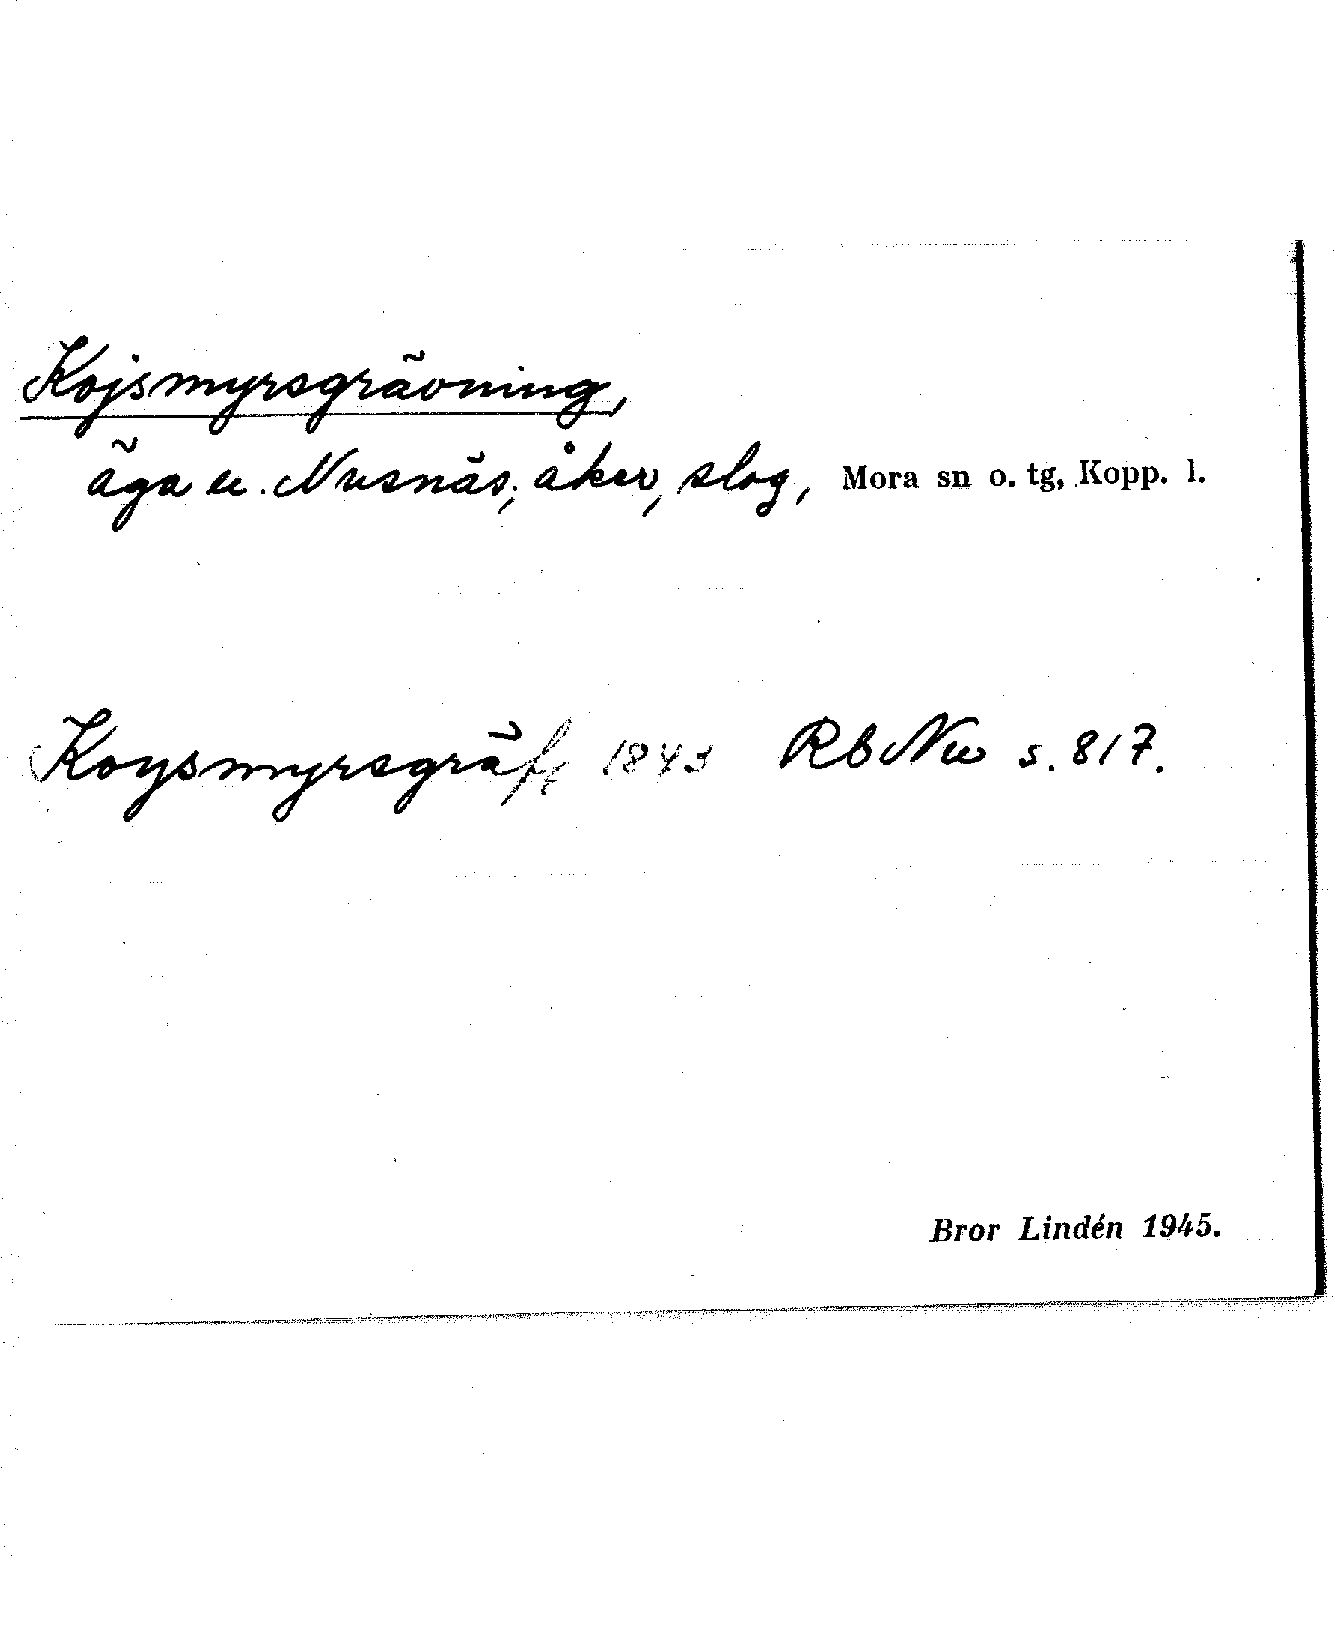 Kojsmyrsgrävning,
äga u. Nusnäs; åker, slog, Mora sn o. tg, Kopp. l.
Koysmyrsgräf 1843 RbNu s. 817.
Bror Lindén 1945.